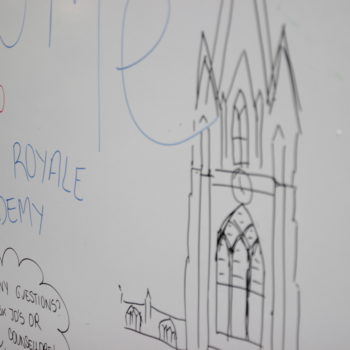 ome
ROYALE
DEMY
NY QUESTIONS?
K JD'S OR
COUNSELLOR!